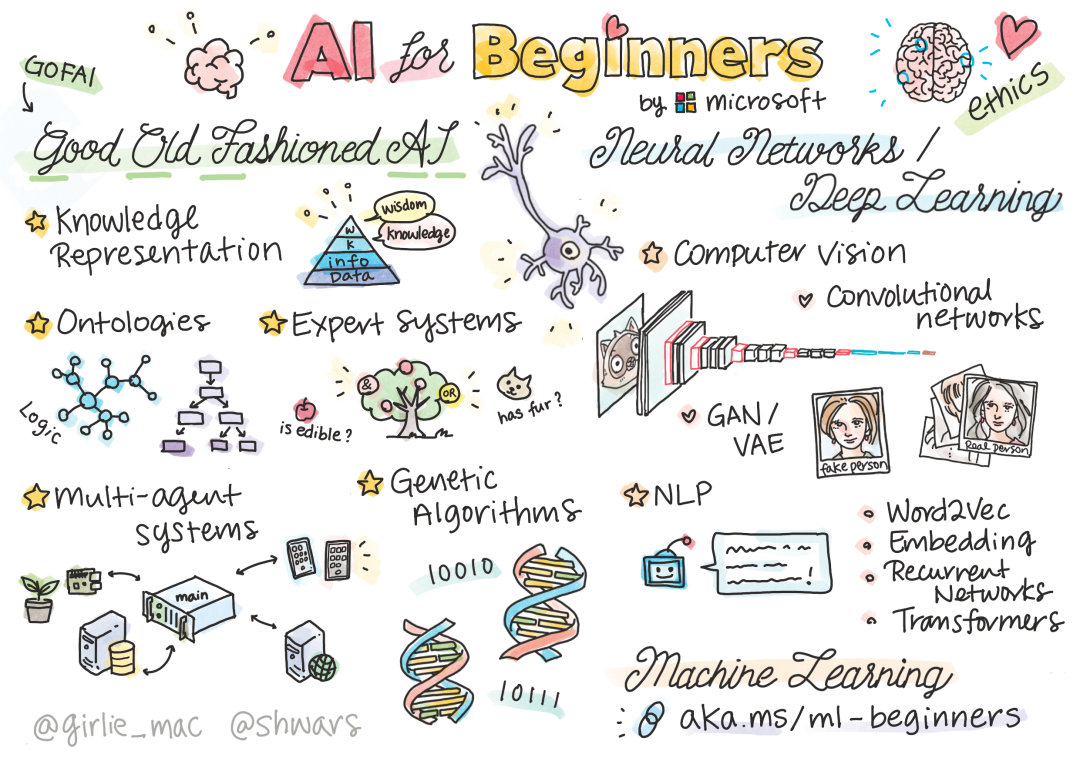 AI for Beginners
by microsoft
GOFAI
Good Old Fashioned AI
Knowledge
Representation
wisdom
knowledge
W
K
info
Data
Ontologies
Logic
Expert Systems
&
OR
is edible?
has fur?
Multi-agent
systems
main
Genetic
Algorithms
10010
10111
@girlie_mac @shwars
ethics
Neural Networks /
Deep Learning
Computer Vision
Convolutional
networks
GAN /
VAE
fake person
Real person
NLP
Word2Vec
Embedding
Recurrent
Networks
Transformers
Machine Learning
aka.ms/ml-beginners